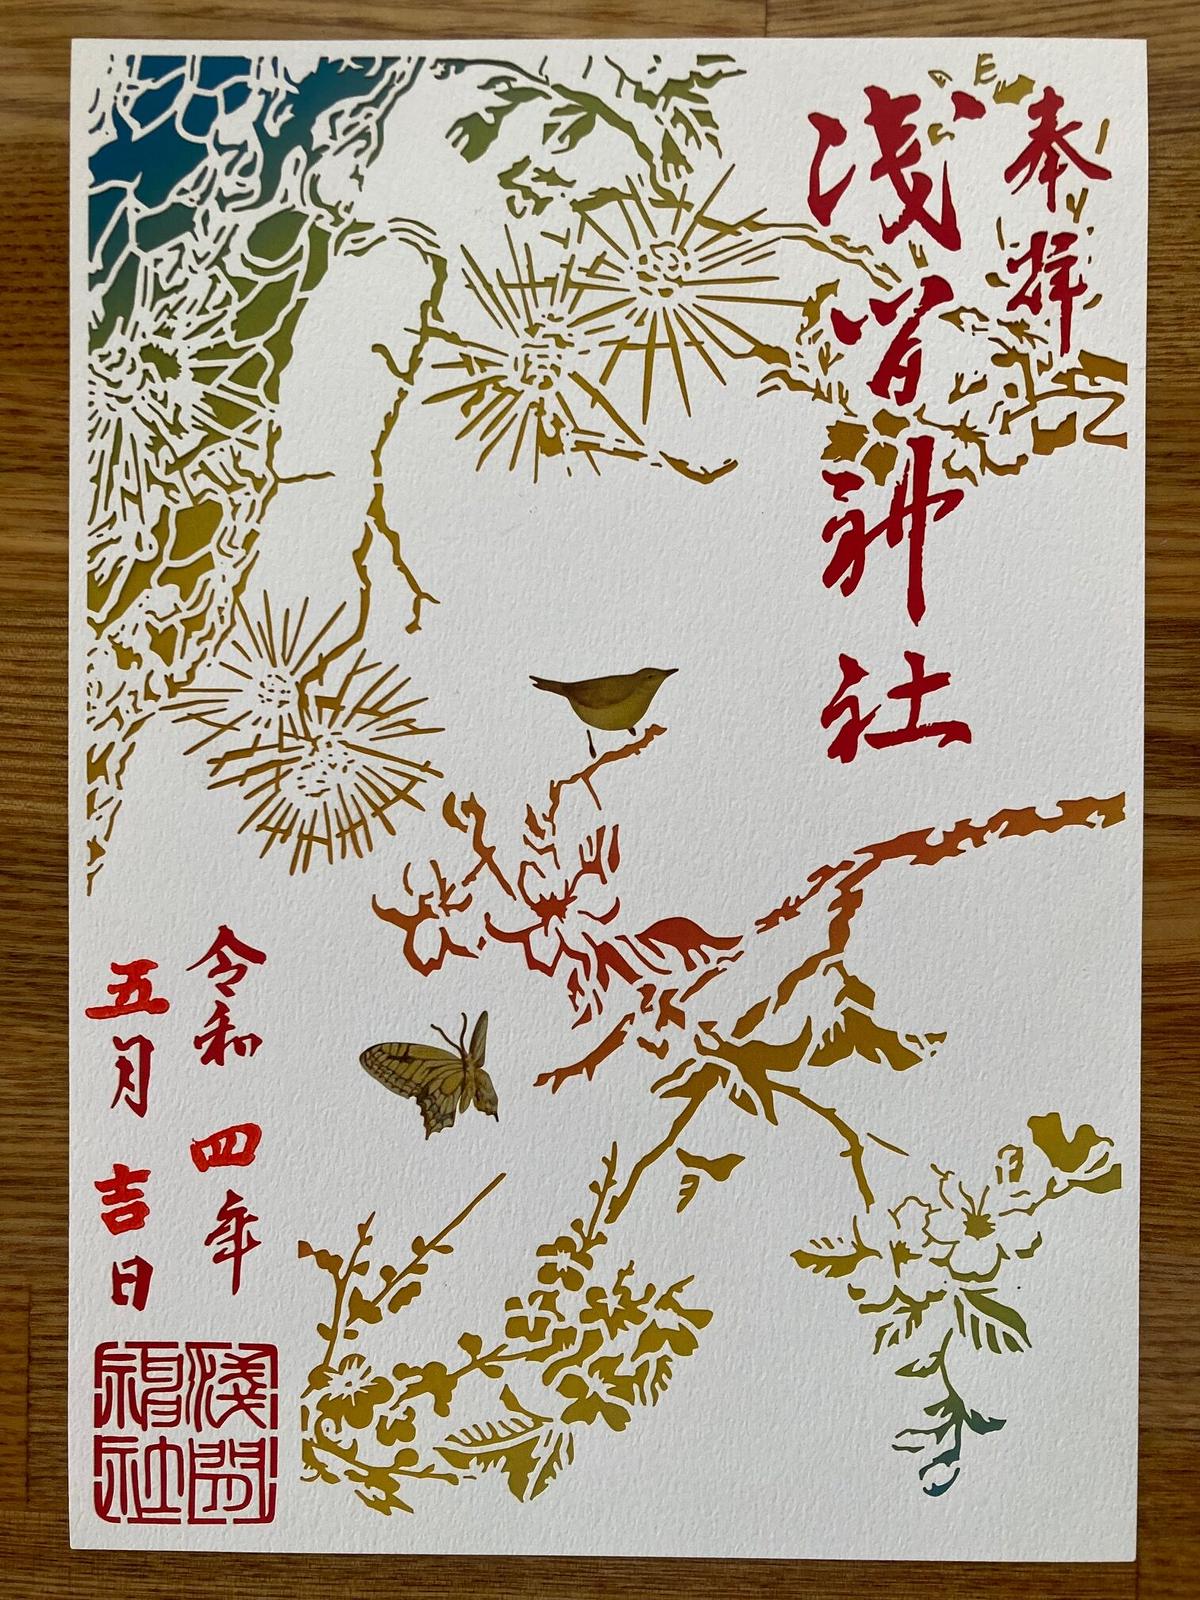 奉拝
浅間神社
令和四年
五月吉日
淺間
神社